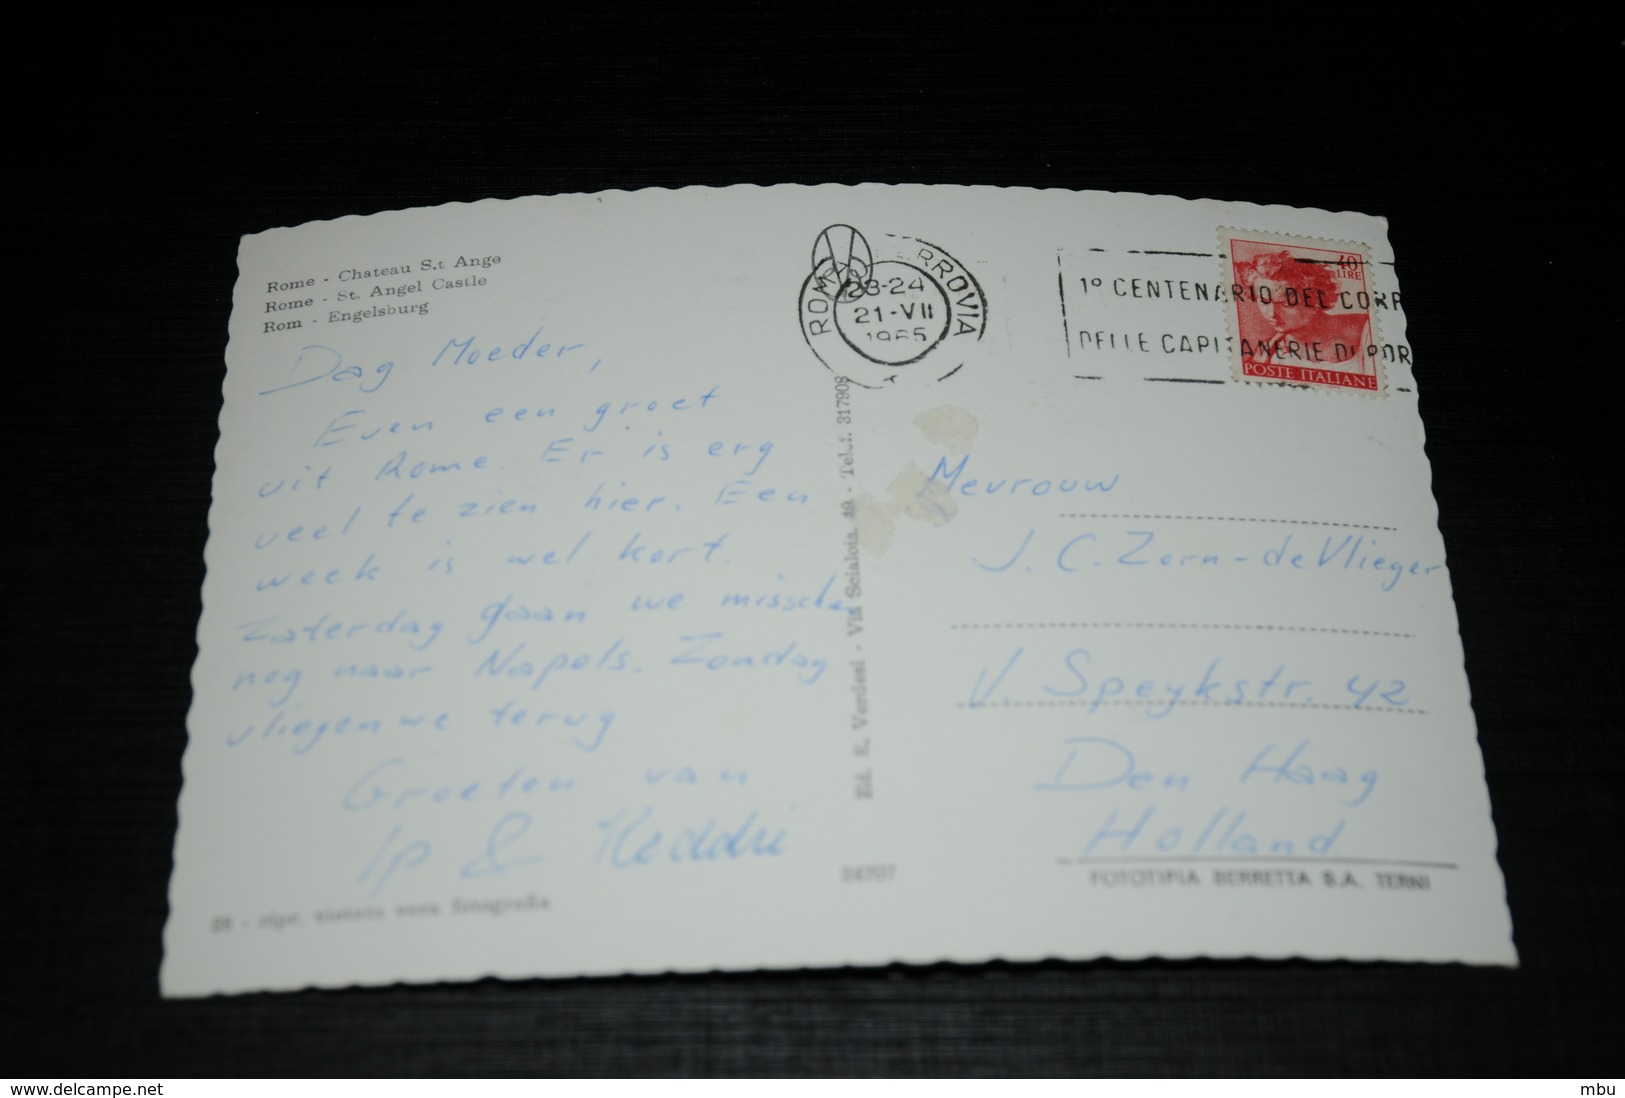 Rome - Chateau S.t Ange
Rome - St. Angel Castle
Rom - Engelsburg
Dag Moeder,
Even een groet
uit Rome. Er is erg
veel te zien hier. Een
week is wel kort.
Zaterdag gaan we misschien
nog naar Napels. Zondag
vliegen we terug
Groeten van
Ip & Heddie
28 - ripr. vietata vera fotografia
Ed. E. Verdesi - Via Scialoia, 49 - Telef. 317908
24707
23-24
21-VII
1965
1º CENTENARIO DEL CORP
DELLE CAPITANERIE DI POR
40
LIRE
POSTE ITALIANE
Mevrouw
J. C. Zorn-de Vlieger
V. Speykstr. 42
Den Haag
Holland
FOTOTIPIA BERRETTA S.A. TERNI
www.delcampe.net
mbu